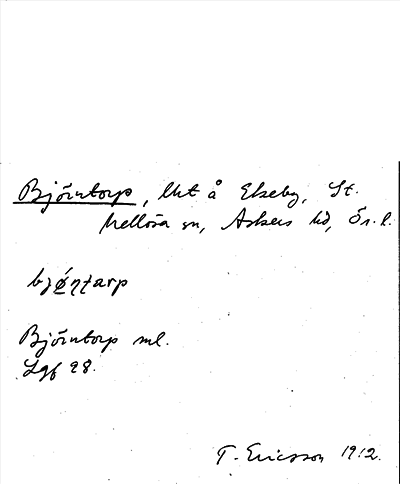 Björntorp, lht å Ekeby, St.
Mellösa sn, Askers hd, Ör. l.
bjǿṇṭarp
Björntorp ml.
Lgf 98.
T. Ericsson 1912.